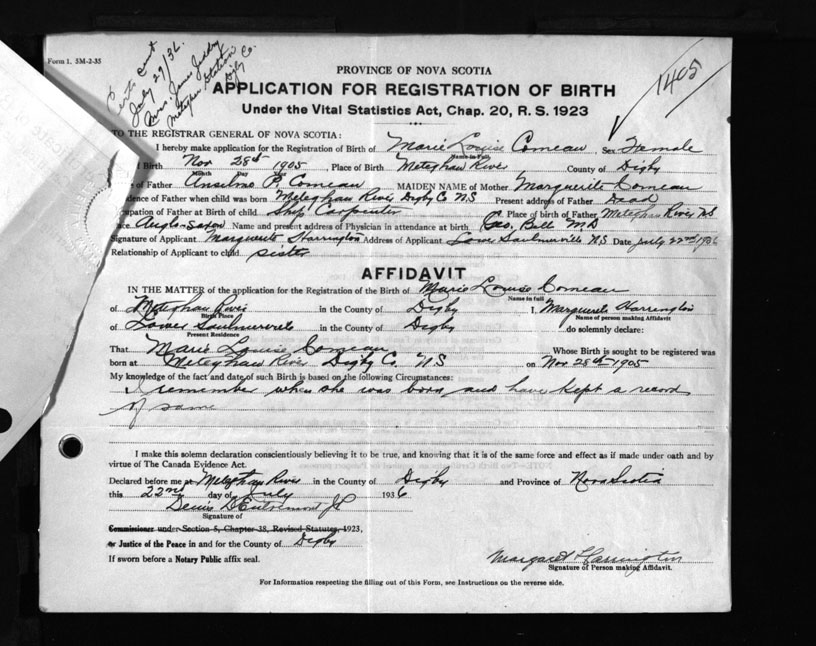 Form 1. 5M-2-35
Certs sent
July 29/36
Mrs. James
Meteghan Station
Digby Co.
1405
PROVINCE OF NOVA SCOTIA
APPLICATION FOR REGISTRATION OF BIRTH
Under the Vital Statistics Act, Chap. 20, R. S. 1923
TO THE REGISTRAR GENERAL OF NOVA SCOTIA:
I hereby make application for the Registration of Birth of Marie Louise Comeau, Sex Female
Name in Full
Birth Nov 28th 1905, Place of Birth Meteghan River County of Digby
Month Day
of Father Anselme P. Comeau MAIDEN NAME of Mother Marguerite Comeau
dence of Father when child was born Meteghan River Digby Co N.S Present address of Father Dead
upation of Father at Birth of child Ship Carpenter Place of birth of Father Meteghan River NS
Anglo-Saxon Name and present address of Physician in attendance at birth Geo. Bell M.D
Signature of Applicant Marguerite Harrington Address of Applicant Lower Saulnierville N.S Date July 22nd 1936
Relationship of Applicant to child sister
AFFIDAVIT
IN THE MATTER of the application for the Registration of the Birth of Marie Louise Comeau
Name in full
of Meteghan River in the County of Digby I, Marguerite Harrington
Birth Place Name of person making Affidavit
of Lower Saulnierville in the County of Digby do solemnly declare:
Present Residence
That Marie Louise Comeau Whose Birth is sought to be registered was
born at Meteghan River Digby Co. N.S on Nov. 28th 1905
My knowledge of the fact and date of such Birth is based on the following Circumstances:
I remember when she was born and have kept a record
of same
I make this solemn declaration conscientiously believing it to be true, and knowing that it is of the same force and effect as if made under oath and by
virtue of The Canada Evidence Act.
Declared before me at Meteghan River in the County of Digby and Province of Nova Scotia
this 22nd day of July 1936
Denis D'Entremont JP
Signature of
Commissioner under Section 5, Chapter 38, Revised Statutes, 1923,
or Justice of the Peace in and for the County of Digby
If sworn before a Notary Public affix seal.
Margaret Harrington
Signature of Person making Affidavit.
For Information respecting the filling out of this Form, see Instructions on the reverse side.